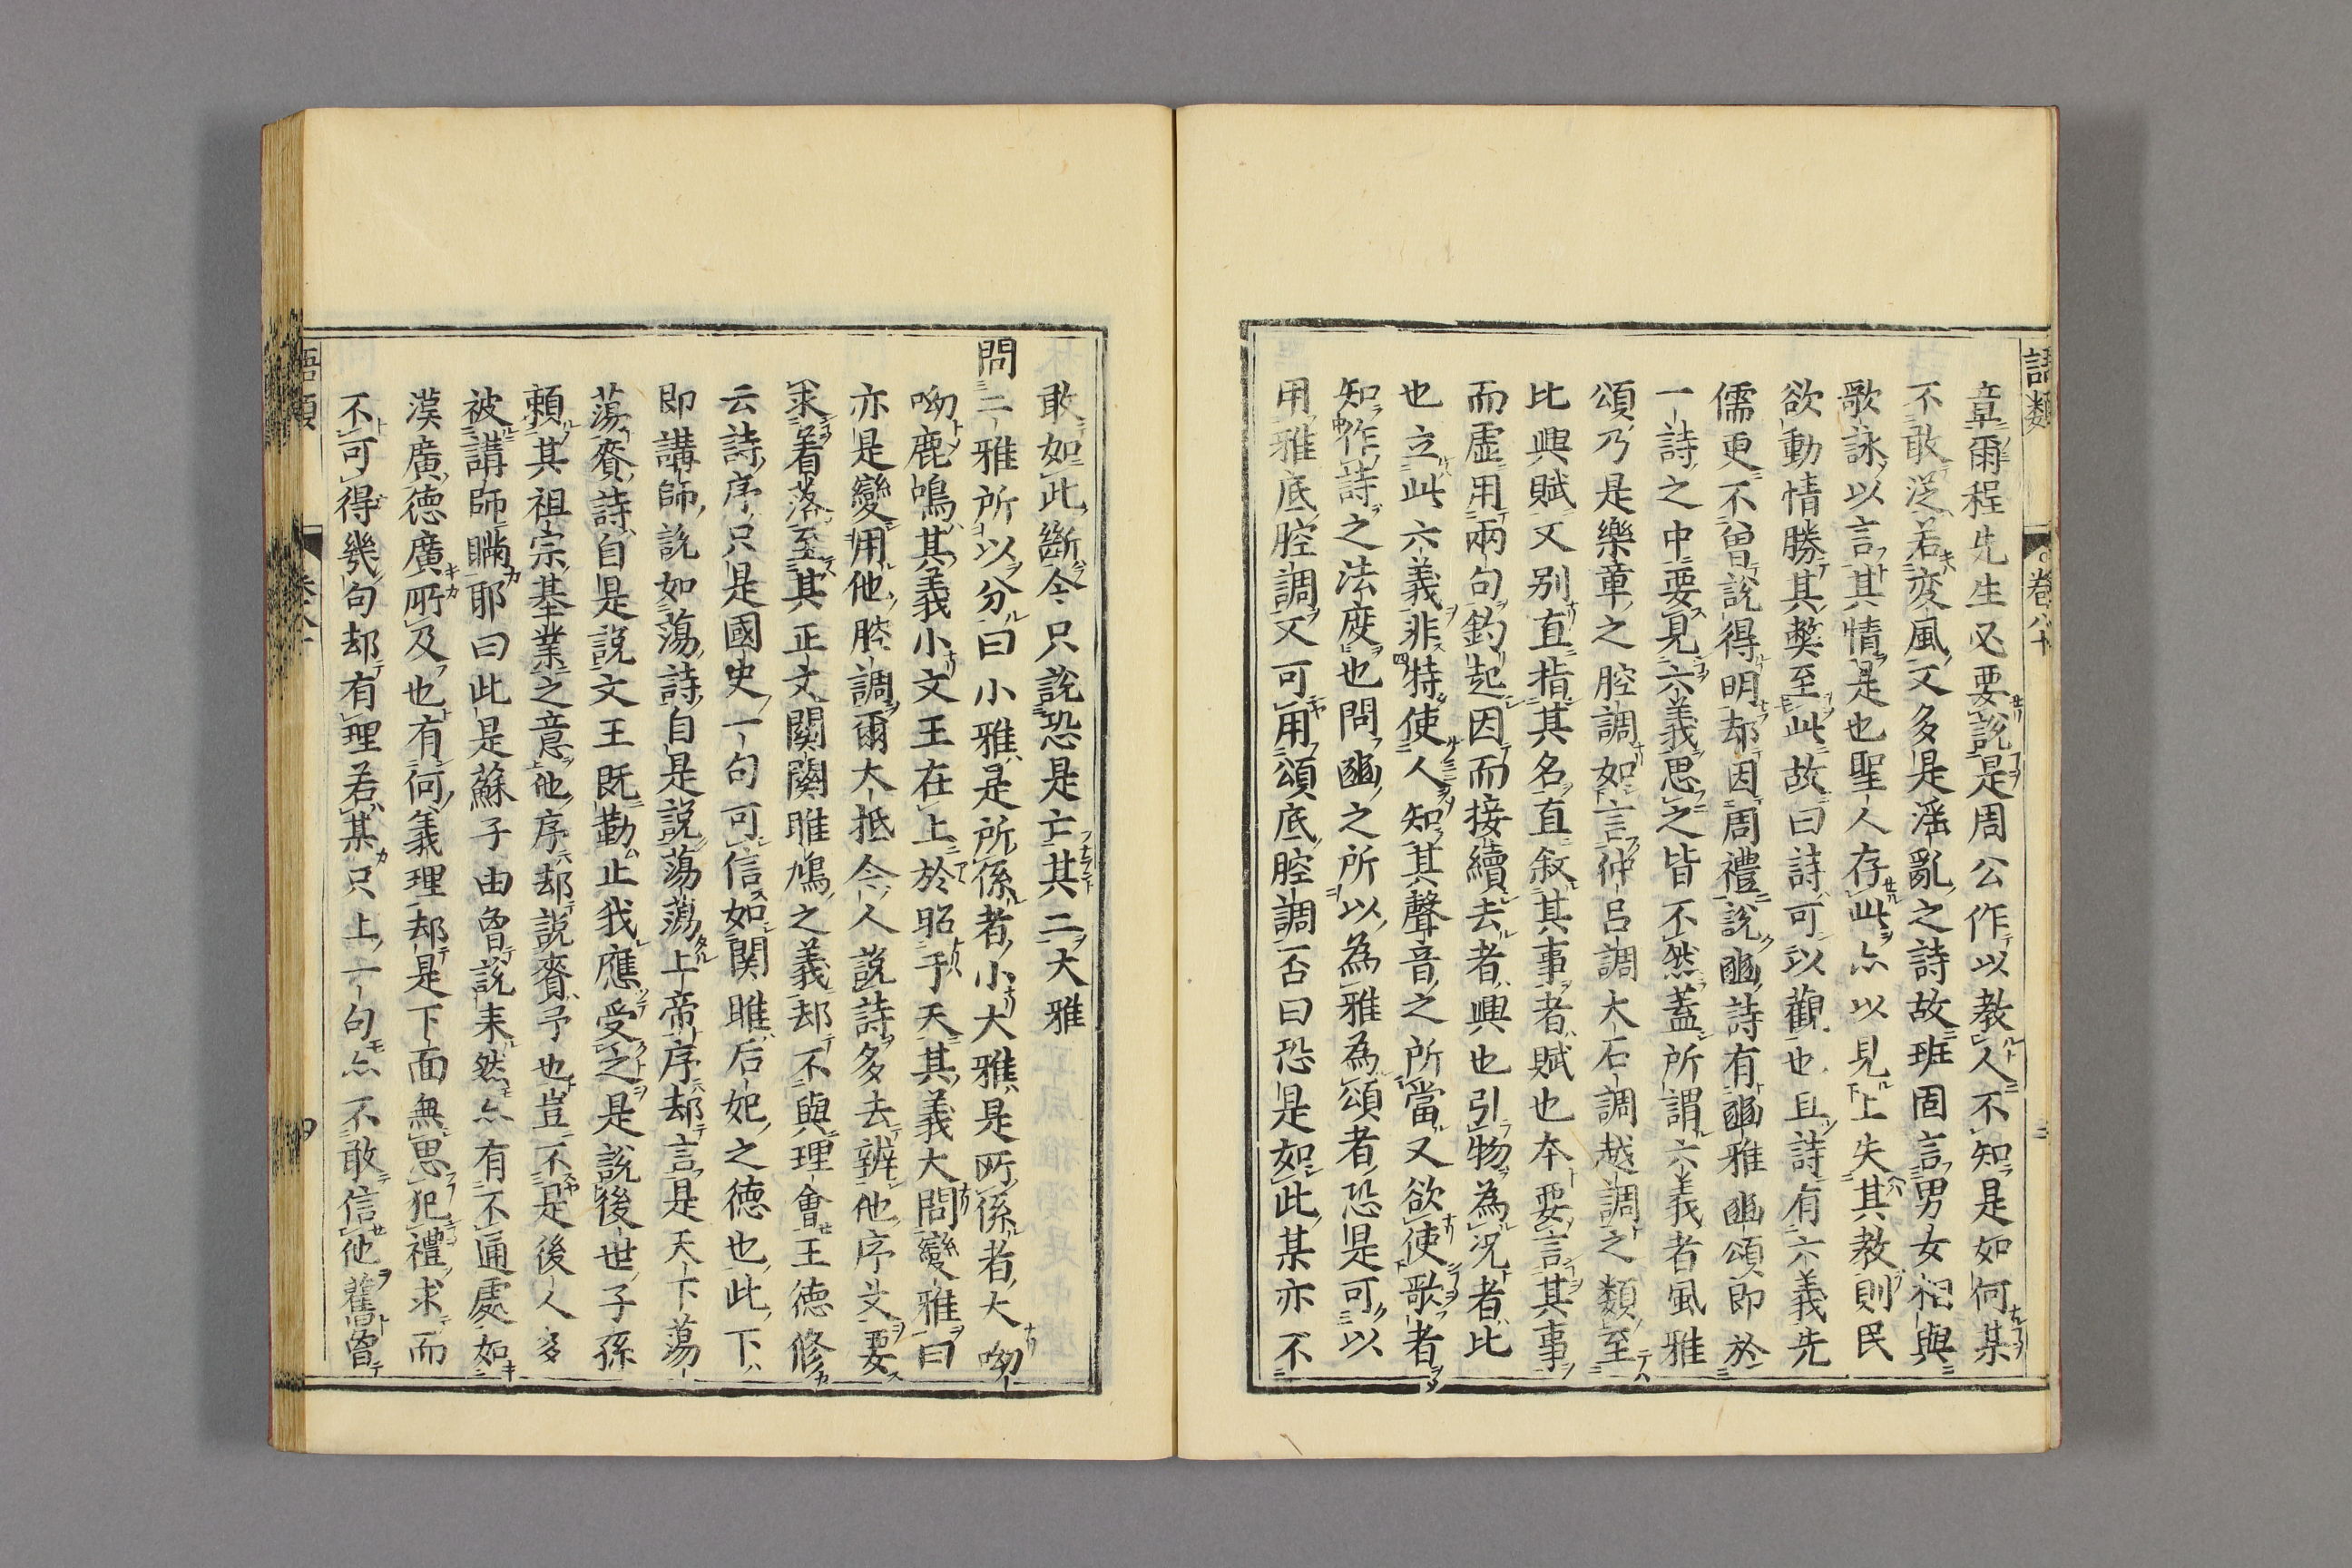 語類
卷八十
章爾程先生必要說是周公作以教人不知是如何某
不敢從若変風又多是淫亂之詩故班固言男女相與
歌詠以言其情是也聖人存此亦以見上失其教則民
欲動情勝其弊至此故曰詩可以觀也且詩有六義先
儒更不曾說得明却因周禮說豳詩有豳雅豳頌即於
一詩之中要見六義思之皆不然蓋所謂六義者風雅
頌乃是樂章之腔調如言仲呂調大石調越調之類至
比興賦又别直指其名直叙其事者賦也本要言其事
而虛用兩句釣起因而接續去者興也引物為况者比
也立此六義非特使人知其聲音之所當又欲使歌者
知作詩之法度也問豳之所以為雅為頌者恐是可以
用雅底腔調又可用頌底腔調否曰恐是如此某亦不
敢如此斷今只說恐是亡其二大雅
問二雅所以分曰小雅是所係者小大雅是所係者大呦
呦鹿鳴其義小文王在上於昭于天其義大問變雅曰
亦是變用他腔調爾大抵今人說詩多去辨他序文要
求着落至其正文關關雎鳩之義却不與理會王德修
云詩序只是國史一句可信如関雎后妃之德也此下
即講師說如蕩詩自是說蕩蕩上帝序却言是天下蕩
蕩賚詩自是説文王既勤止我應受之是說後世子孫
頼其祖宗基業之意他序却說賚予也豈不是後人多
被講師瞞耶曰此是蘇子由曾說来然亦有不通處如
漢廣德廣所及也有何義理却是下面無思犯禮求而
不可得幾句却有理若某只上一句亦不敢信他舊曾
語類